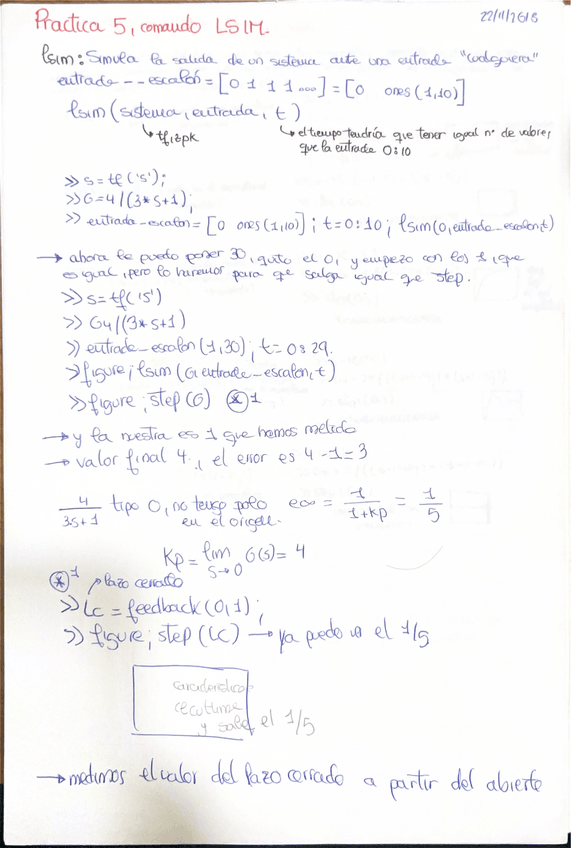 22/11/2018
Practica 5, comando LSIM.
lsim: Simula la salida de un sistema ante una entrada "cualquiera"
entrada--escalón = [0 1 1 1 ...] = [0 ones(1,10)]
lsim(sistema, entrada, t)
tf, zpk
el tiempo tendría que tener igual nº de valores
que la entrada 0:10
>> s=tf('s');
>> G=4/(3*s+1);
>> entrada_escalon=[0 ones(1,10)]; t=0:10; lsim(0,entrada_escalon,t)
→ ahora le puedo poner 30, quito el 0, y empezo con los 1, que
es igual, pero lo haremos para que salga igual que step.
>> s=tf('s')
>> G4/(3*s+1)
>> entrada_escalon(1,30); t=0:29.
>> figure; lsim(G, entrada_escalon, t)
>> figure; step(G) *1
→ y la nuestra es 1 que hemos metido
→ valor final 4, el error es 4-1=3
4/3s+1 tipo 0, no tengo polo e∞ = 1/1+kp = 1/5
en el origen.
Kp = lim s→0 G(s) = 4
*1 lazo cerrado
>> Lc = feedback(0,1);
>> figure; step(LC) → ya puedo el 1/5
y sale el 1/5
→ medimos el valor del lazo cerrado a partir del abierto